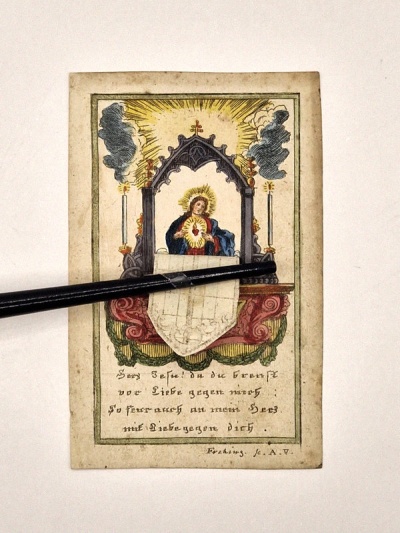 Herz Jesu! da du brenst
vor Liebe gegen mich :
So feur auch an mein Herz
mit Liebe gegen dich .
sc. A. V.